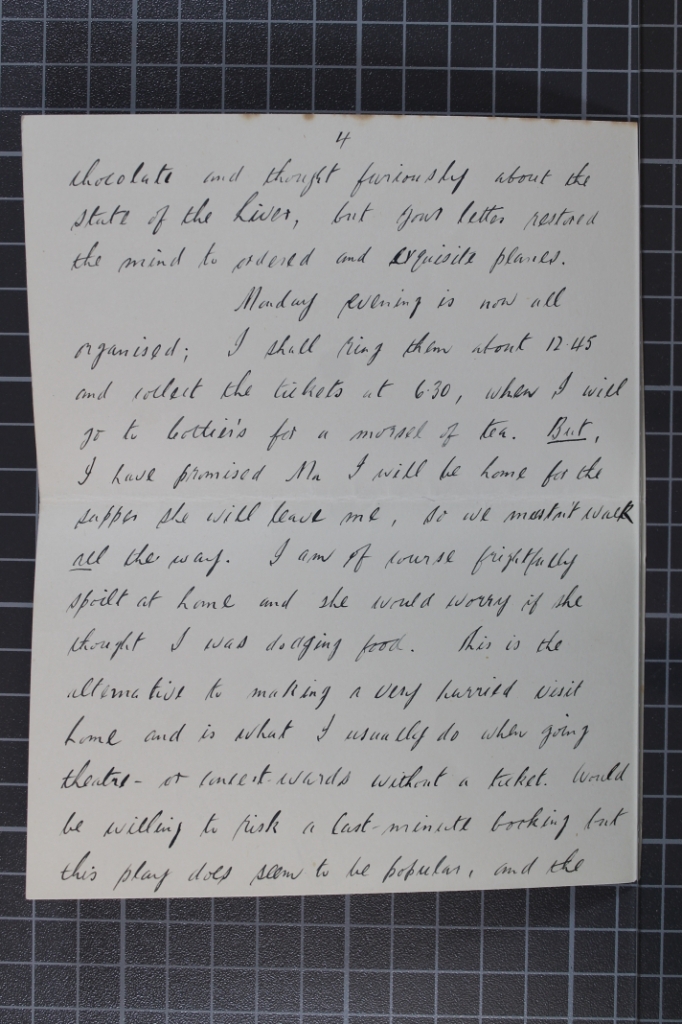 4
chocolate and thought furiously about the
state of the liver, but your letter restored
the mind to ordered and exquisite planes.
Monday evening is now all
organised; I shall ring them about 12.45
and collect the tickets at 6.30, when I will
go to Cottier's for a morsel of tea. But,
I have promised Ma I will be home for the
supper she will leave me, so we mustn't walk
all the way. I am of course frightfully
spoilt at home and she would worry if she
thought I was dodging food. This is the
alternative to making a very hurried visit
home and is what I usually do when going
theatre- or concert-wards without a ticket. Would
be willing to risk a last-minute booking but
this play does seem to be popular, and the